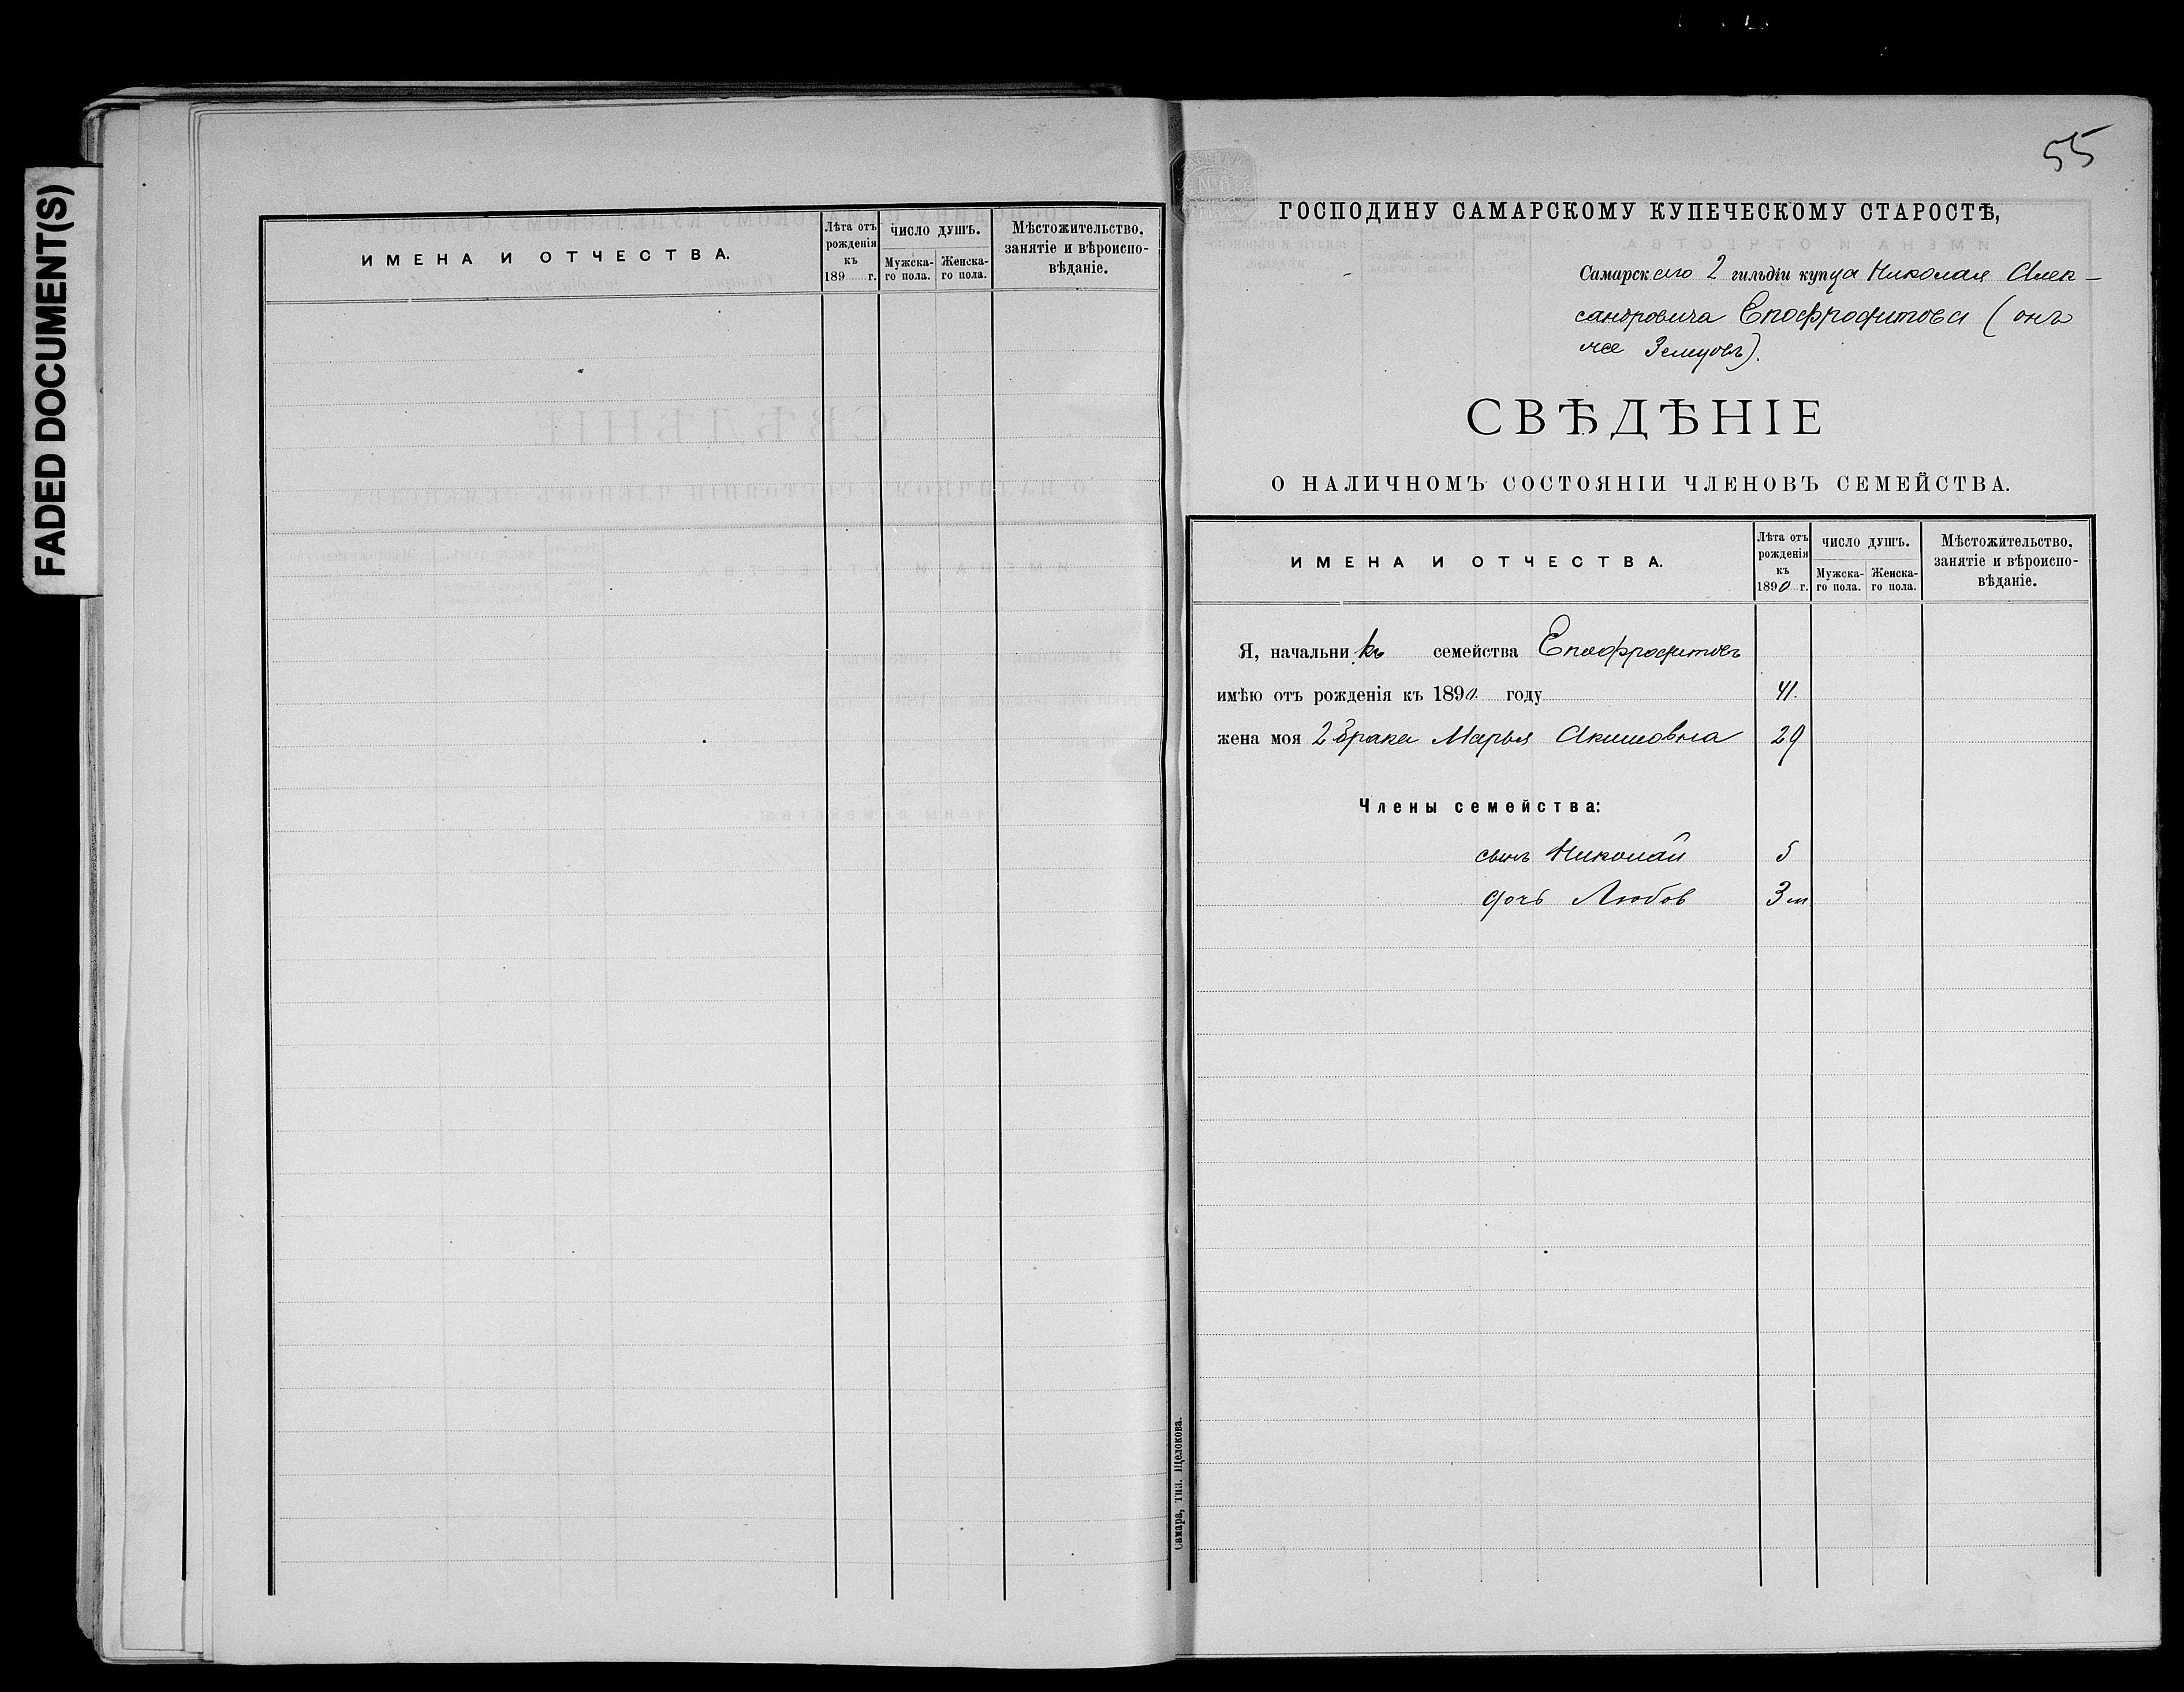 FADED DOCUMENT(S)
ИМЕНА И ОТЧЕСТВА.
Лѣта отъ рожденія къ 189 г.
ЧИСЛО ДУШЪ.
Мужска-го пола.
Женска-го пола.
Мѣстожительство, занятіе и вѣроиспо-вѣданіе.
55
ГОСПОДИНУ САМАРСКОМУ КУПЕЧЕСКОМУ СТАРОСТѢ,
Самарскаго 2 гильдіи купца Николая Алек-
сандровича Епафродитова (онъ
же Земцовъ).
СВѢДѢНІЕ
О НАЛИЧНОМЪ СОСТОЯНІИ ЧЛЕНОВЪ СЕМЕЙСТВА.
ИМЕНА И ОТЧЕСТВА.
Лѣта отъ рожденія къ 1890 г.
ЧИСЛО ДУШЪ.
Мужска-го пола.
Женска-го пола.
Мѣстожительство, занятіе и вѣроиспо-вѣданіе.
Я, начальникъ семейства Епафродитовъ
имѣю отъ рожденія къ 1890 году 41.
жена моя 2 брака Марья Акимовна 29
Члены семейства:
сынъ Николай 5
дочь Любов 3 м.
Самара, Тип. Щелокова.